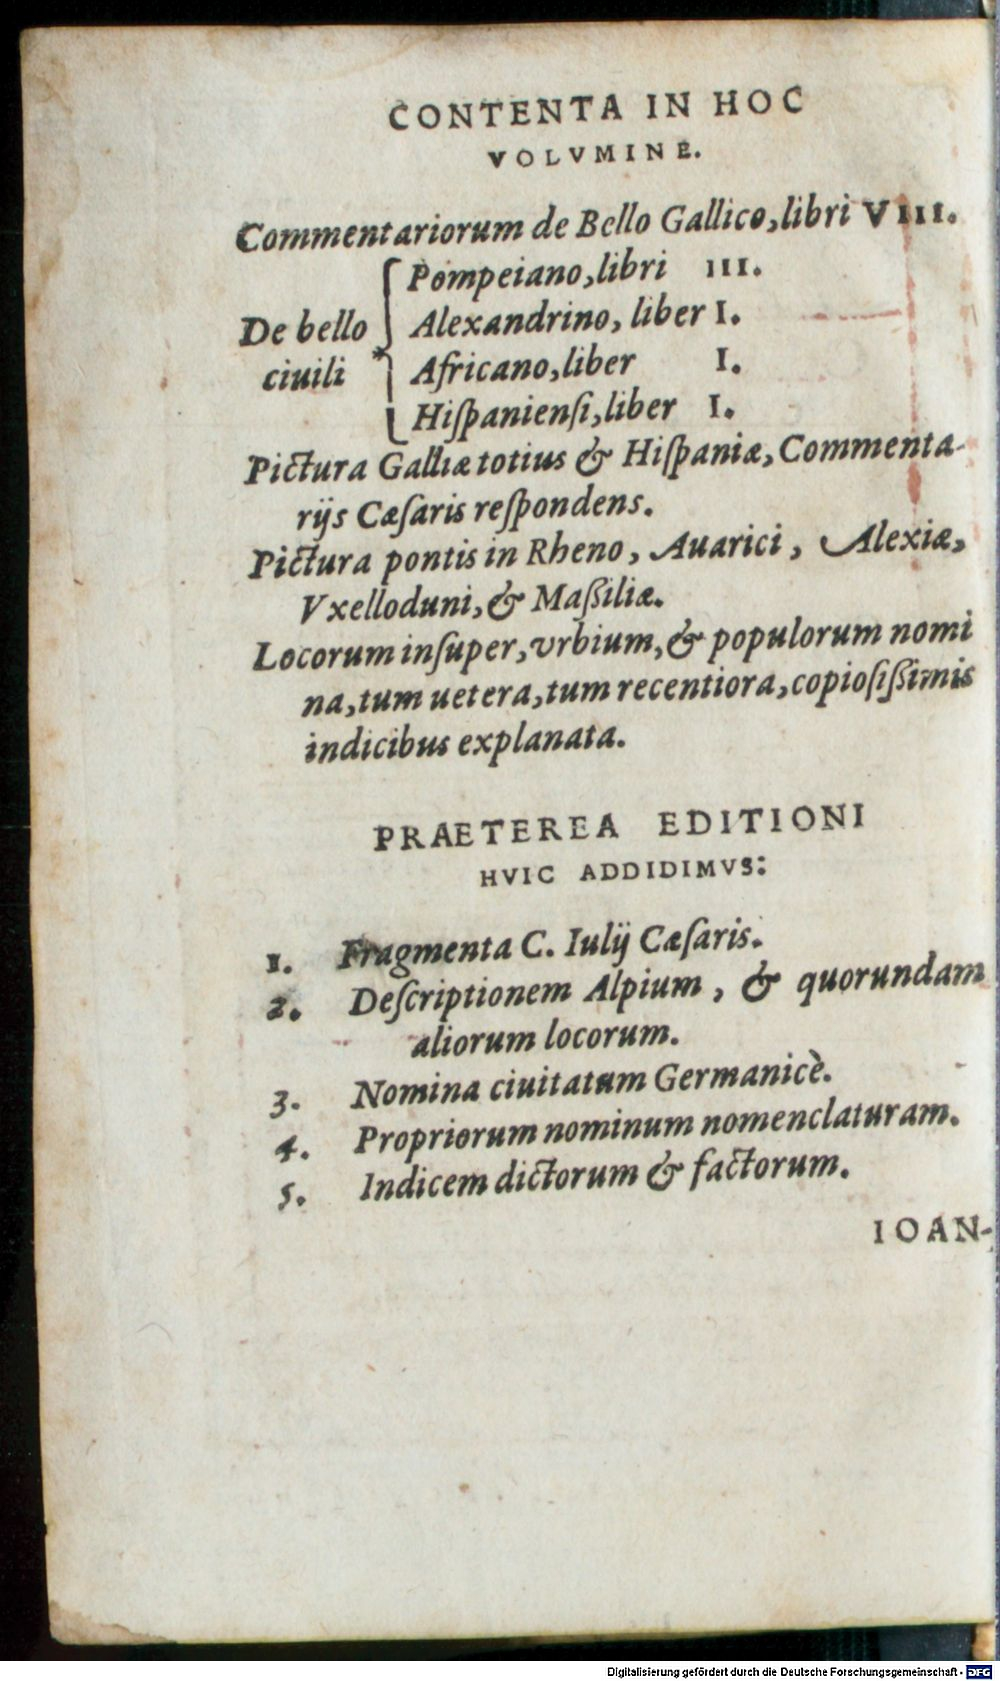 CONTENTA IN HOC
VOLVMINE.
Commentariorum de Bello Gallico, libri VIII.
Pompeiano, libri III.
De bello Alexandrino, liber I.
ciuili Africano, liber I.
Hiſpanienſi, liber I.
Pictura Galliæ totius & Hiſpaniæ, Commenta-
rijs Cæſaris reſpondens.
Pictura pontis in Rheno, Auarici, Alexiæ,
Vxelloduni, & Maßiliæ.
Locorum inſuper, vrbium, & populorum nomi
na, tum uetera, tum recentiora, copioſißimis
indicibus explanata.
PRAETEREA EDITIONI
HVIC ADDIDIMVS:
1. Fragmenta C. Iulij Cæſaris.
2. Deſcriptionem Alpium, & quorundam
aliorum locorum.
3. Nomina ciuitatum Germanicè.
4. Propriorum nominum nomenclaturam.
5. Indicem dictorum & factorum.
IOAN-
Digitalisierung gefördert durch die Deutsche Forschungsgemeinschaft - DFG